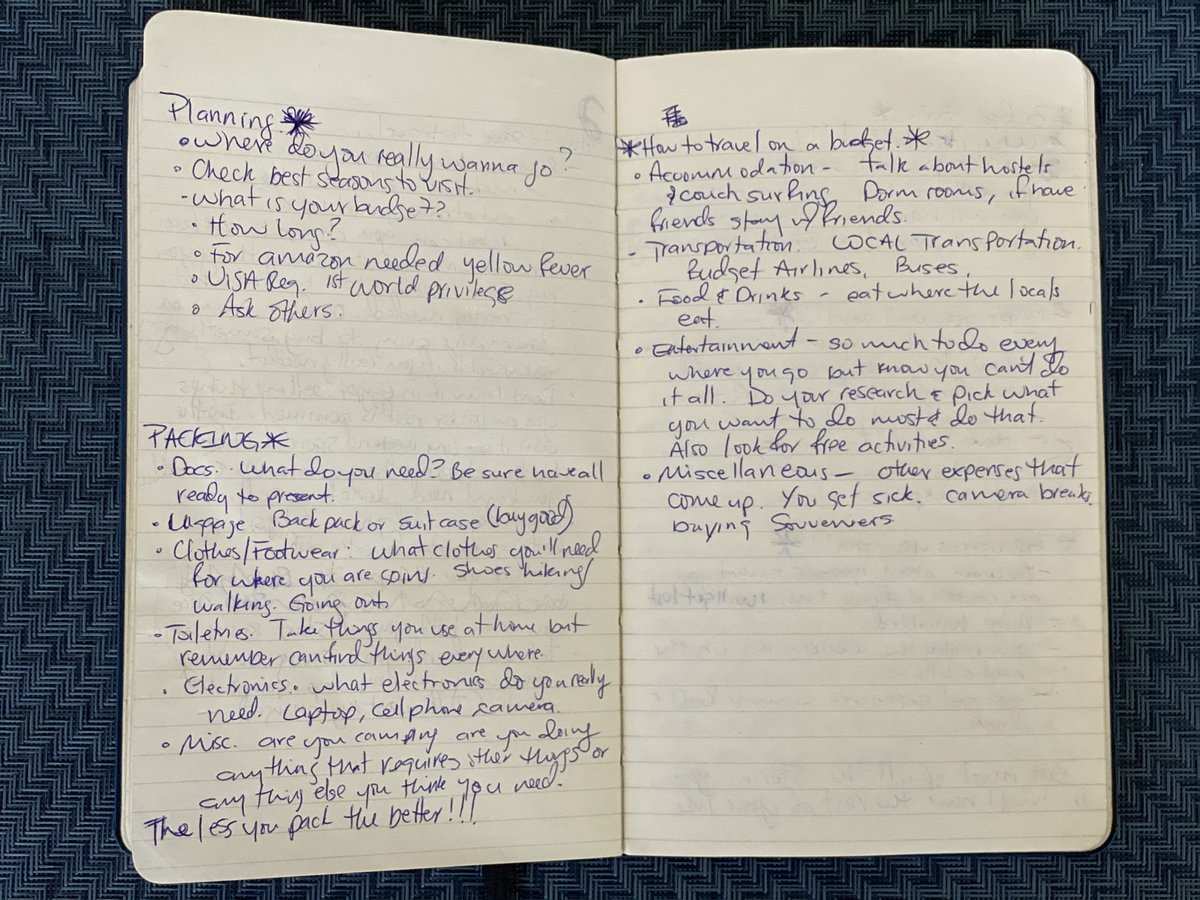 Planning
• Where do you really wanna go?
• Check best seasons to visit.
- What is your budget?
• How long?
• For amazon needed yellow fever
• VISA Req. 1st world privilege
• Ask others.
PACKING*
• Docs. What do you need? Be sure have all
ready to present.
• Luggage Backpack or suitcase (buy good)
• Clothes/Footwear: what clothes you'll need
for where you are going. Shoes hiking/
walking. Going out.
• Toiletries. Take things you use at home but
remember can find things everywhere.
• Electronics. what electronics do you really
need. Laptop, cell phone camera.
• Misc. are you camping are you doing
anything that requires other things or
anything else you think you need.
The less you pack the better!!!
*How to travel on a budget.*
• Accommodation - talk about hostels
& couch surfing Dorm rooms, if have
friends stay w/ friends.
- Transportation. LOCAL Transportation.
Budget Airlines, Buses,
• Food & Drinks - eat where the locals
eat.
• Entertainment - so much to do every
where you go but know you can't do
it all. Do your research & pick what
you want to do most & do that.
Also look for free activities.
• Miscellaneous - other expenses that
come up. You get sick. camera breaks,
buying Souveniers.